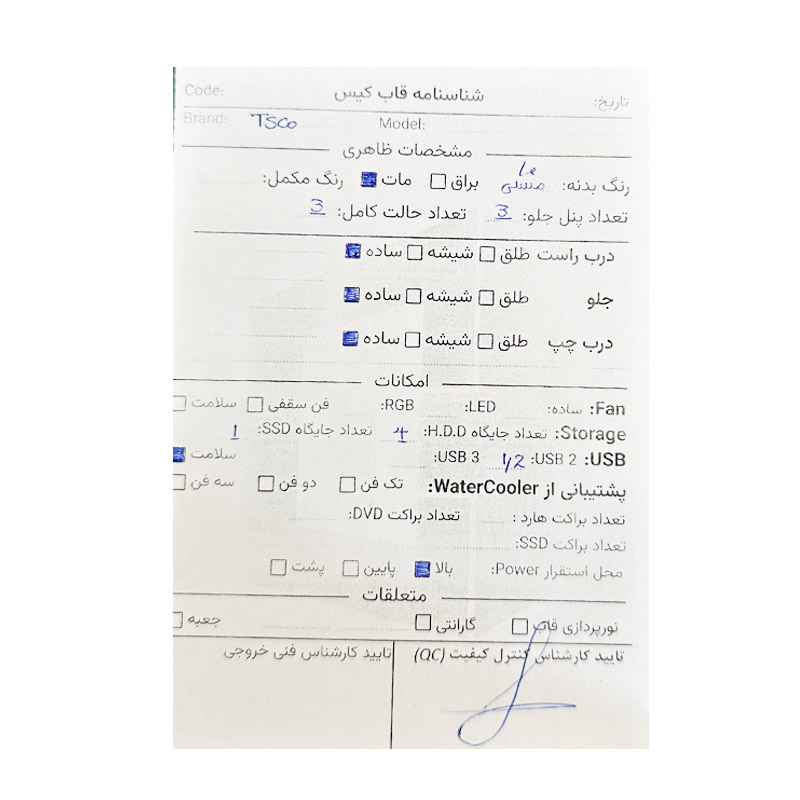 Code: شناسنامه قاب کیس تاریخ:
Brand: TSCO Model:
مشخصات ظاهری
رنگ بدنه: مشکی براق مات رنگ مکمل:
تعداد پنل جلو: 3 تعداد حالت کامل: 3
درب راست طلق شیشه ساده
جلو طلق شیشه ساده
درب چپ طلق شیشه ساده
امکانات
Fan: ساده: LED: RGB: فن سقفی سلامت
Storage: تعداد جایگاه H.D.D: 4 تعداد جایگاه SSD: 1
USB: USB 2: USB 3: سلامت
پشتیبانی از WaterCooler: تک فن دو فن سه فن
تعداد براکت هارد : تعداد براکت DVD:
تعداد براکت SSD:
محل استقرار Power: بالا پایین پشت
متعلقات
نورپردازی قاب گارانتی جعبه
تایید کارشناس کنترل کیفیت (QC) تایید کارشناس فنی خروجی